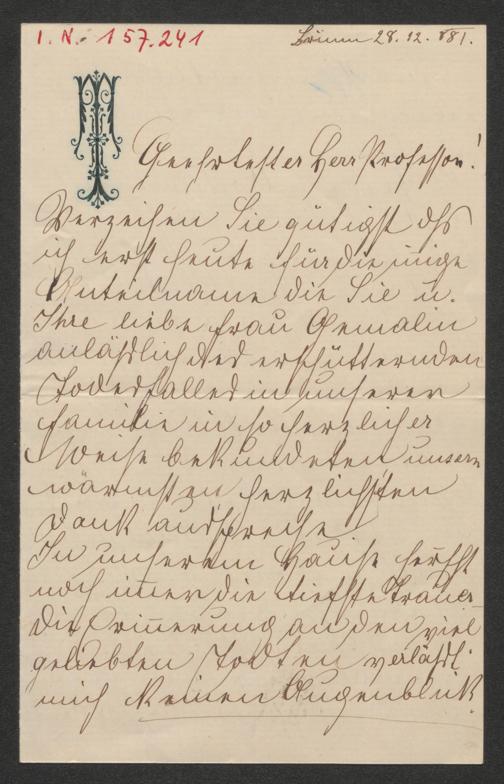 I. N. 157.241
Brünn 28. 12. 881.
Geehrtester Herr Professor!
Verzeihen Sie gütigst dß
ich erst heute für die inige
Anteilname die Sie u.
Ihre liebe Frau Gemalin
anläßlich des erschütternden
Todesfalles in unserer
Familie in so herzlicher
Weise bekundeten unsern
wärmsten herzlichsten
Dank ausspreche
In unserem Hause herscht
noch imer die tiefste Trauer
die Erinerung an den viel
geliebten Todten verläßt
mich keinen Augenblick.